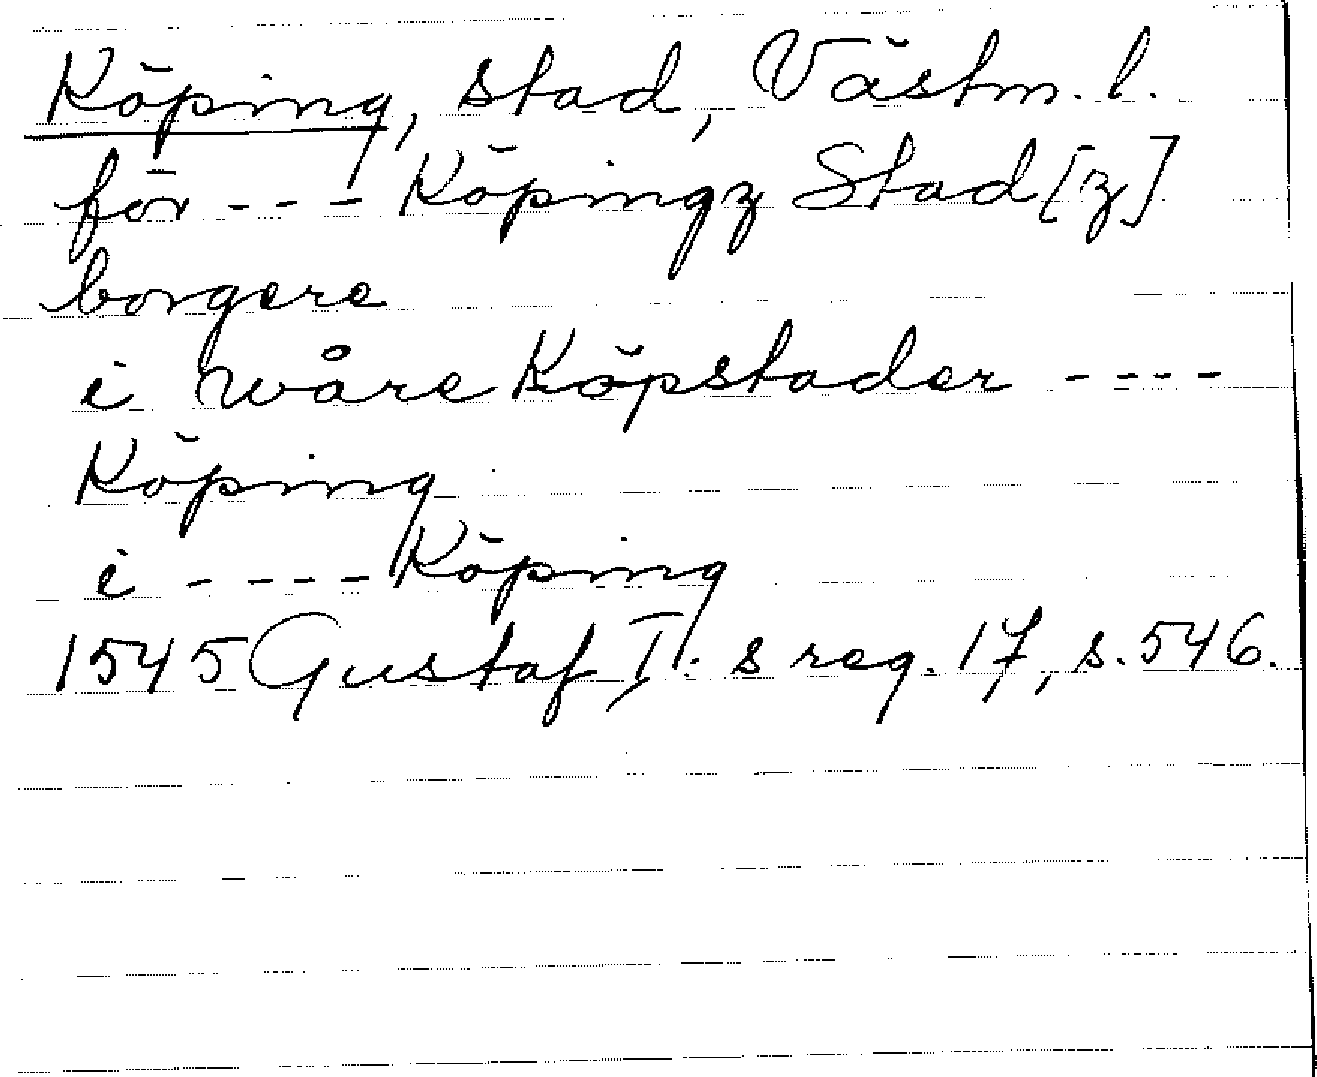 Köping, stad, Västm. l.
för --- Köpingz Stad[z]
borgere
i wåre Köpstader ----
Köping
i ---- Köping
1545 Gustaf I:s reg. 17, s. 546.